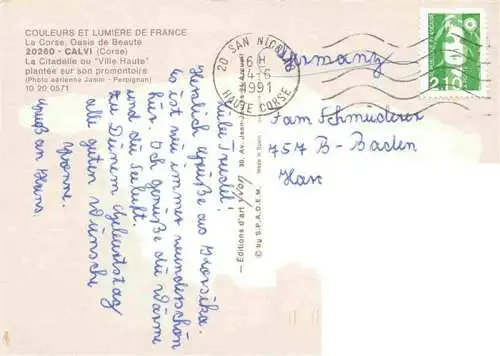 COULEURS ET LUMIÈRE DE FRANCE
La Corse, Oasis de Beauté
20260 - CALVI (Corse)
La Citadelle ou "Ville Haute"
plantée sur son promontoire
(Photo aérienne Janier - Perpignan)
10 20 0571
20 SAN NICOLAO
16 H
14-6
1991
HAUTE CORSE
Germany
2,10
Fam Schmüderer
757 B-Baden
Herzlich Grüße aus Korsika.
es ist wie immer wunderschön
hier. Ich genieße die Wärme
und die Seeluft.
Zu Deinem Geburtstag
alle guten Wünsche
Yvonne.
Gruß an Hans.
Editions d'art
30, Av. Jean-Jaurès
Made in Spain
© by S.P.A.D.E.M.